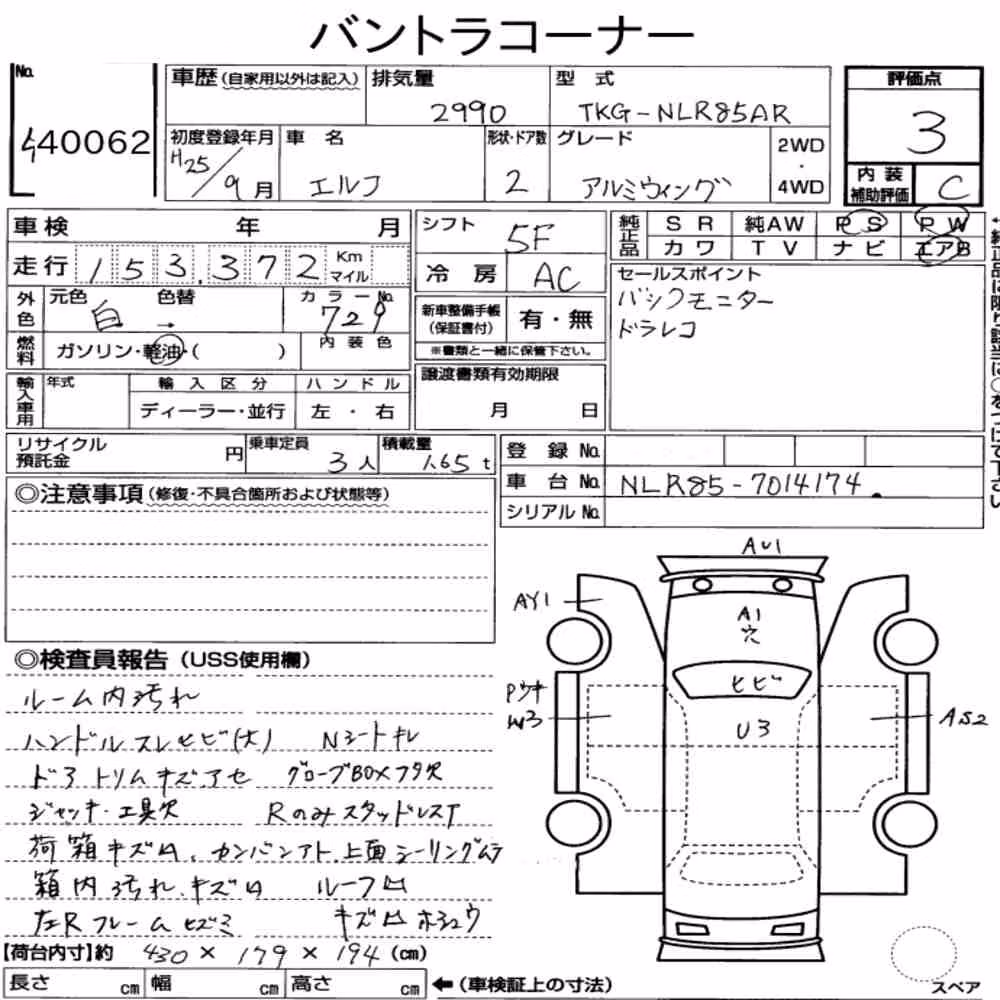 バントラコーナー
No.
440062
車歴(自家用以外は記入)
排気量
2990
型式
TKG-NLR85AR
評価点
3
初度登録年月
H25/9月
車名
エルフ
形状・ドア数
2
グレード
アルミウィング
2WD
・
4WD
内装
補助評価
C
車検 年 月
走行 153,372 Km マイル
シフト
5F
冷房
AC
純正品
SR 純AW PS PW
カワ TV ナビ エアB
セールスポイント
バックモニター
ドラレコ
外色
元色 色替
白 →
カラーNo.
729
燃料
ガソリン・軽油・( )
内装色
新車整備手帳
(保証書付)
有・無
※書類と一緒に保管下さい。
輸入車用
年式
輸入区分
ディーラー・並行
ハンドル
左・右
譲渡書類有効期限
月 日
リサイクル
預託金
円
乗車定員
3人
積載量
1.65t
登録No.
車台No.
NLR85-7014174
シリアルNo.
◎注意事項(修復・不具合箇所および状態等)
◎検査員報告(USS使用欄)
ルーム内汚れ
ハンドルスレヒビ(大) Nシートキレ
ドアトリムキズ、アセ グローブBOXフタ欠
ジャッキ・工具欠 Rのみスタッドレス
荷箱キズ凹、カンバンアト、上面シーリングムラ
箱内汚れ、キズ凹 ルーフ凹
左Rフレームヒズミ キズ凹ホシュウ
【荷台内寸】約 430×179×194(cm)
長さ cm 幅 cm 高さ cm ←(車検証上の寸法)
AU1
AY1
A1
穴
ヒビ
Pウキ
W3
U3
AS2
スペア